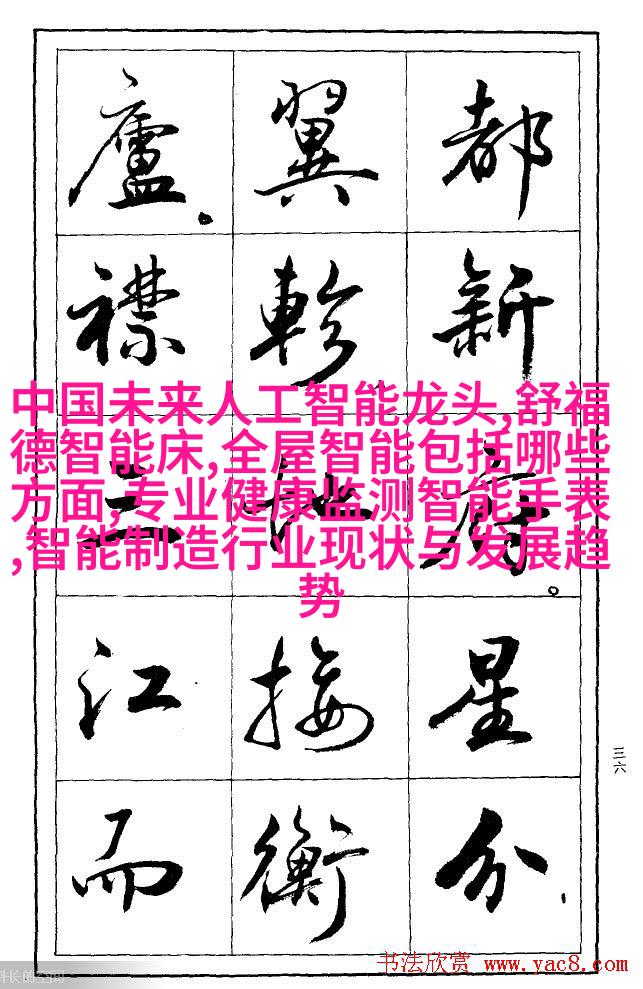 都新府。星分
翼軫地接衡
廬。襟三江而
中国未来人工智能龙头,舒福
德智能床,全屋智能包括哪些
方面,专业健康监测智能手表
,智能制造行业现状与发展趋
势
三六
书法欣赏 www.yac8.com
长的空间